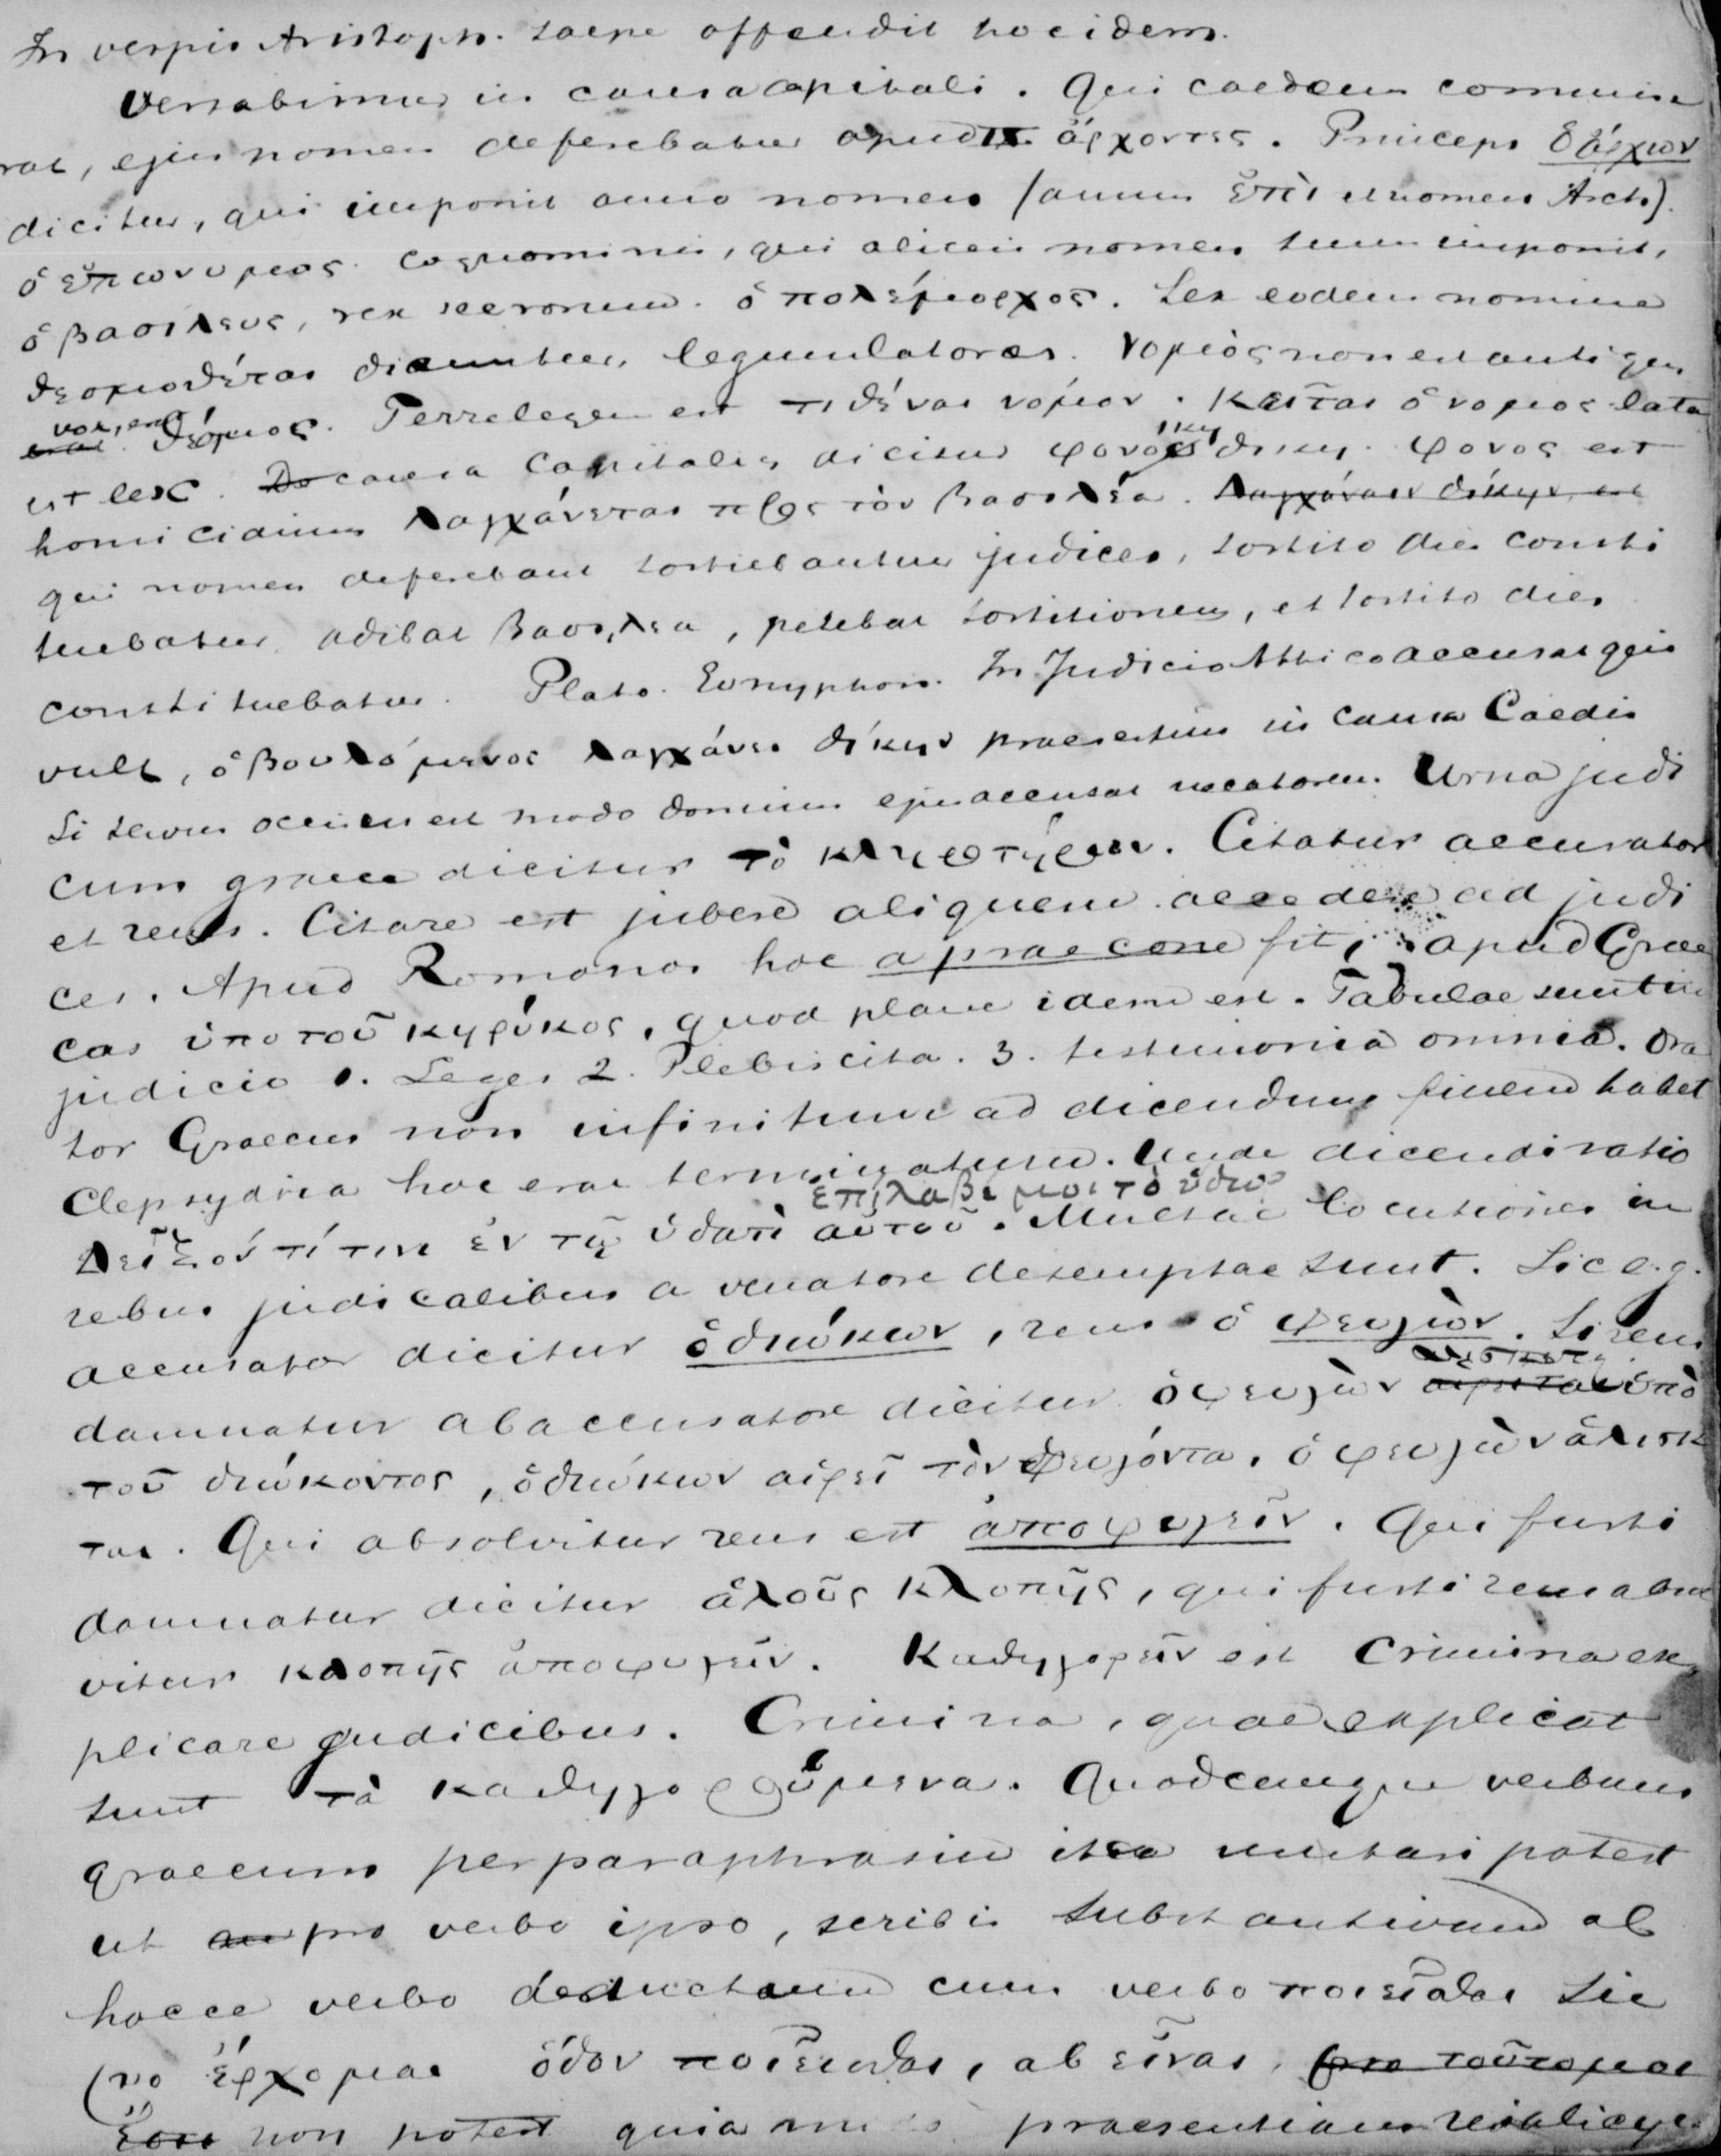 In vespis Aristoph. saepe offendit hoc idem.
Versabimur in causa capitali. Qui caedem commise
rat, ejus nomen deferebatur apud ἄρχοντες. Princeps ὁ ἄρχων
dicitur, qui imponit anno nomen (annum ἐπὶ et nomen Arch).
ὁ ἐπωνυμος cognominis, qui alicui nomen suum imponit,
ὁ βασιλευς, rex sacrorum. ὁ πολέμαρχος. Sex eodem nomine
θεσμοθέται dicuntur, legumlatores. Νομὸς non est antiqua
vox, erat θέσμος. Ferre legem est τιθέναι νόμον. Κεῖται ὁ νομος lata
est lex. causa capitalis dicitur φονικη δικη. φονος est
homicidium λαγχάνεται προς τὸν βασιλέα. Λαγχάνειν δίκην est
qui nomen deferebant sortiebantur judices, sortito dies consti
tuebatur, adibat βασιλεα, petebat sortitionem, et sortito dies
constituebatur. Plato. Euthyphon. In Judicio Attico accusat quis
vult, ὁ βουλόμενος λαγχάνει δίκην praesertim in causa Caedis
Si servus occisus est modo dominus ejus accusat necatorem. Urna judi
cum graece dicitur τὸ κληρωτήριον. Citatur accusator
et reus. Citare est jubere aliquem accedere ad judi
ces. Apud Romanos hoc a praecone fit, apud Grae
cos ὑπο τοῦ κηρύκος, quod plane idem est. Tabulae sunt in
judicio 1. Leges 2. Plebiscita. 3. testimonia omnia. Ora
tor Graecus non infinitum ad dicendum finem habet
Clepsydra hoc erat terminatum. Unde dicendi ratio
ἐπιλαβε μοι το ὑδωρ
Δεῖξον τί τινι ἐν τῷ ὑδατι αὑτοῦ. Multae locutiones in
rebus judicalibus a venatore desemptae sunt. Sic e.g.
accusator dicitur ὁ διώκων, reus ὁ φευγὼν. Si reus
damnatur ab accusatore dicitur ὁ φευγὼν αἱρειται ὑπὸ
τοῦ διώκοντος, ὁ διώκων αἱρεῖ τὸν φευγόντα. ὁ φευγὼν ἁλισκ
ται. Qui absolvitur reus est ἀποφυγεῖν. Qui furti
damnatur dicitur ἁλοῦς κλοπῆς, qui furti reus absol
vitur κλοπῆς ἀποφυγεῖν. Καθηγορεῖν est Crimina ex
plicare judicibus. Crimina, quae explicat
sunt τὰ καθηγορούμενα. Quodcunque verbum
graecum per paraphrasin ita mutari potest
ut pro verbo ipso, scribis substantivum ab
hocce verbo deductum cum verbo ποιεῖσθαι Sic
pro ἔρχομαι ὁδον ποιεῖσθαι, ab εἶναι,
non potest quia praesentiam